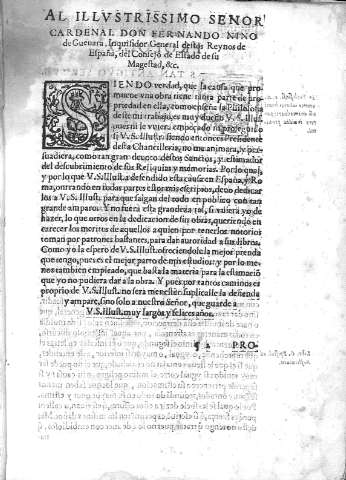 AL ILLVSTRISSIMO SEÑOR
CARDENAL DON FERNANDO NIÑO
de Gueuara, Inquisidor General destos Reynos de
España, del Consejo de Estado de su
Magestad, &c.
SIENDO verdad, que la causa que pro-
mueue vna obra tiene tanta parte de pro-
priedad en ella, como enseña la Philosofia
deste mi trabajo, es muy suyo V.S. Illust.
siendo entonces Presidente
desta Chancilleria, no me animara, y per-
suadiera, como tan gran deuoto destos Sanctos, y estimador
del descubrimiento de sus Reliquias y memorias. Por lo qual,
y por lo que V.S. Illust. a defendido esta causa en España, y Ro-
ma, onrrando en todas partes estos mis escriptos, deuo dedicar
los a V.S. Illust. para que salgan del todo en publico con tan
grande amparo. Y no fuera esta grandeza tal, si valiera yo de
hazer, lo que otros en la dedicacion de sus obras, queriendo en
carecer los meritos de aquellos a quien por tenerlos notorios
toman por patrones bastantes, para dar autoridad a sus libros.
Como yo la espero de V.S. Illust. ofreciendole la mejor prenda
que tengo, pues es el mejor parto de mis estudios: y por lo me-
nos tambien empleado, que basta la materia para la estimaciõ
que yo no pudiera dar a la obra. Y pues por tantos caminos es
proprio de V.S. Illust. no sera menester suplicalle la defienda
y ampare, sino solo a nuestro Señor, que guarde a
V.S. Illust. muy largos y felices años.
¶ 2 PRO-